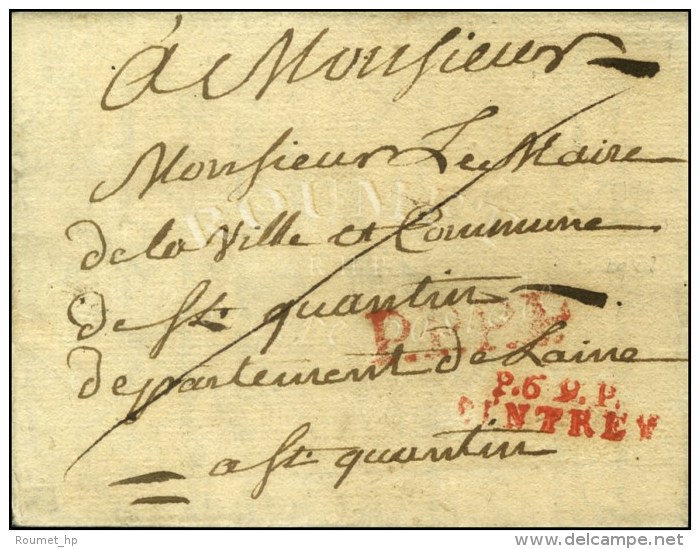 à Monsieur
Monsieur Le Maire
de la Ville et Commune
de St. quantin
P.P.P.P.
departement de Laine
P.6 D.P.
a St. quantin
ROUMET
Roumet_hp
delcampe.net